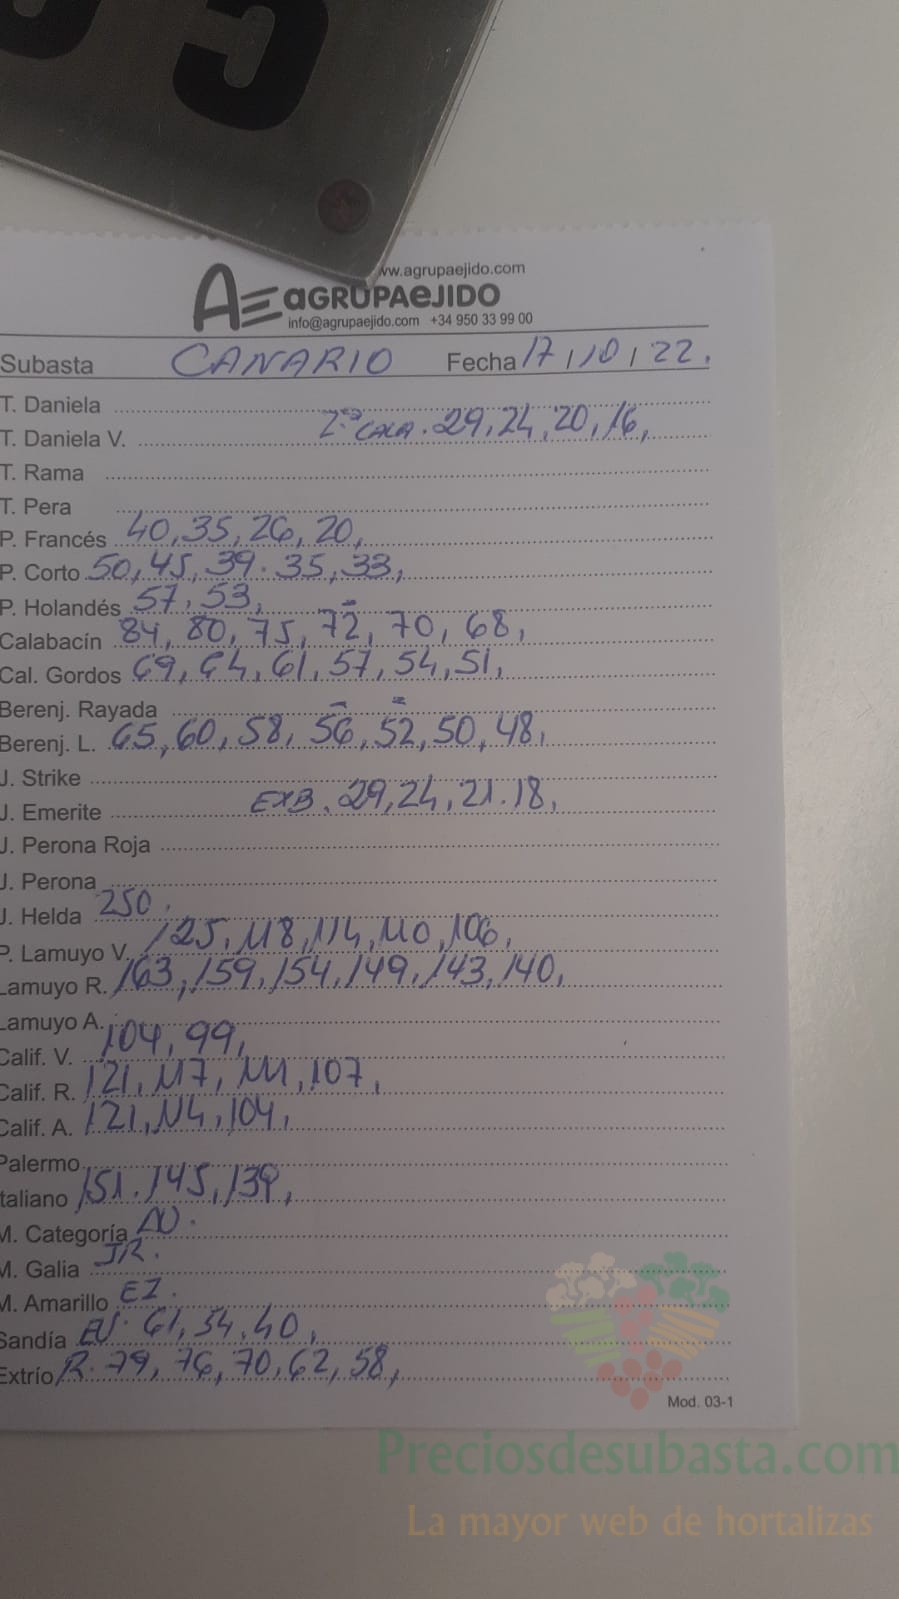 05
ww.agrupaejido.com
AE aGRUPAeJIDO
info@agrupaejido.com +34 950 33 99 00
Subasta CANARIO Fecha 17/10/22.
T. Daniela
T. Daniela V. 29, 24, 20, 16,
T. Rama
T. Pera
P. Francés 40, 35, 26, 20,
P. Corto 50, 45, 39. 35, 33,
P. Holandés 57, 53,
Calabacín 84, 80, 75, 72, 70, 68,
Cal. Gordos 69, 64, 61, 57, 54, 51,
Berenj. Rayada
Berenj. L. 65, 60, 58, 56, 52, 50, 48,
J. Strike
J. Emerite EXB. 29, 24, 21. 18,
J. Perona Roja
J. Perona
J. Helda 250.
P. Lamuyo V. 125, 118, 114, 110, 106,
Lamuyo R. 163, 159, 154, 149, 143, 140,
Lamuyo A.
Calif. V. 104, 99,
Calif. R. 121, 117, 111, 107,
Calif. A. 121, 114, 104,
Palermo
taliano 151. 145, 139,
M. Categoría
M. Galia JR.
M. Amarillo
Sandía 61, 54, 40,
Extrío R. 79, 76, 70, 62, 58,
Mod. 03-1
Preciosdesubasta.com
La mayor web de hortalizas